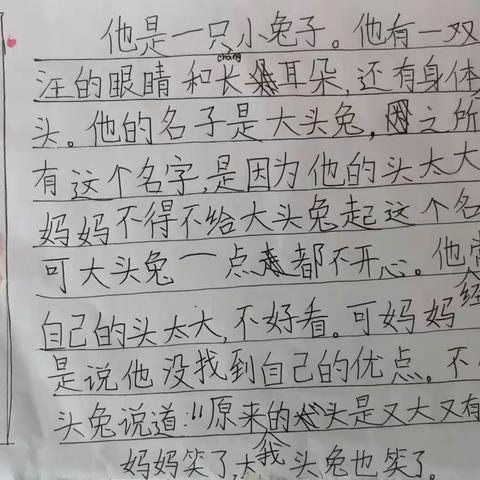 他是一只小兔子。他有一双
汪的眼睛和长耳朵,还有身体
chang
头。他的名子是大头兔,之所
有这个名字,是因为他的头太大
妈妈不得不给大头兔起这个名
可大头兔一点都不开心。他常
经
自己的头太大,不好看。可妈妈
是说他没找到自己的优点。不
头兔说道:“原来的头是又大又有
我
妈妈笑了,大头兔也笑了。